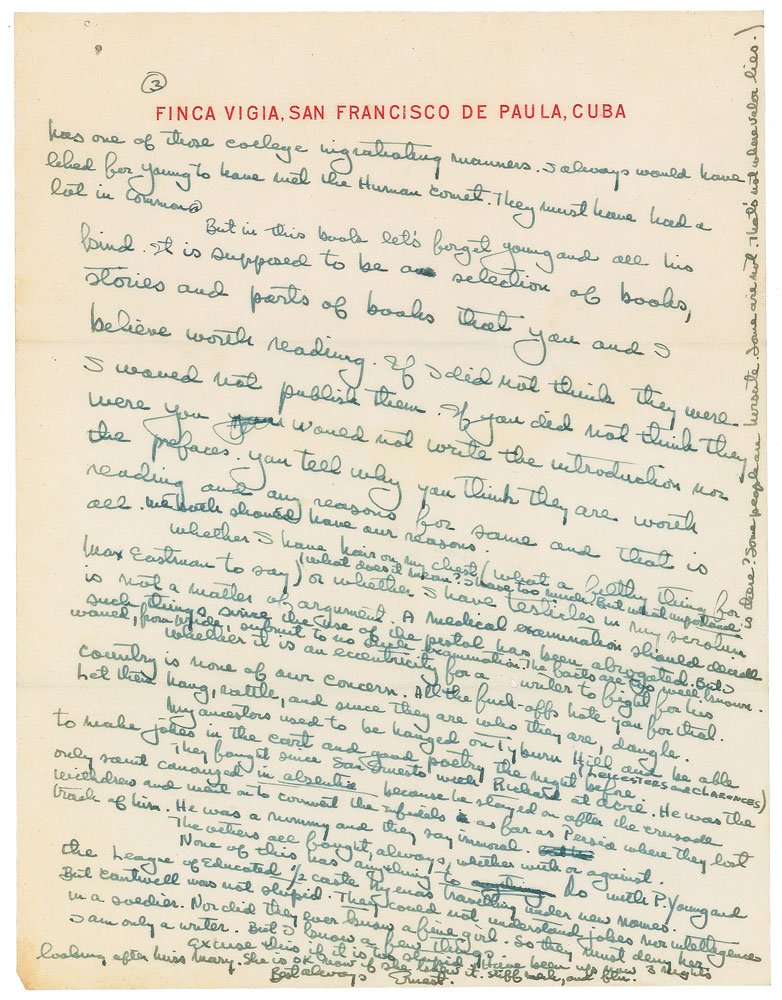 3
FINCA VIGIA, SAN FRANCISCO DE PAULA, CUBA
has one of those college ingratiating manners. I always would have
liked for Young to have met the Human Comet. They must have had a
lot in common.
But in this book let's forget Young and all his
kind. It is supposed to be a selection of books,
stories and parts of books that you and I
believe worth reading. If I did not think they were
I would not publish them. If you did not think they
were you would not write the introduction nor
the prefaces. You tell why you think they are worth
reading and any reasons for same and that is
all. We both should have our reasons.
Whether I have hair on my chest (what a filthy thing for
Max Eastman to say) (What does it mean? I have too much. But what importance
is there? Some people are hirsute. Some are not. That's not where valor lies.)
or whether I have testicles in my scrotum
is not a matter of argument. A medical examination should decide
such things since the use of the pistol has been abrogated. But I
would, from pride, submit to no examination. The facts are too well known.
Whether it is an eccentricity for a writer to fight for his
country is none of our concern. All the fuck-offs hate you for that.
Let them hang, rattle, and since they are who they are, dangle.
My ancestors used to be hanged on Tyburn Hill and be able
to make jokes in the cart and good poetry the night before.
(Leicesters and Clarences)
They fought since San Ernesto with Richard at Acre. He was the
only saint canonized in absentia because he stayed on after the crusade
withdrew and went on to convert the infidels as far as Persia where they lost
track of him. He was a rummy and they say immoral.
The others all fought, always, whether with or against.
None of this has anything to do with P. Young and
the League of Educated 1/2 caste travelling under new names.
But Cantwell was not stupid. They could not understand jokes nor intelligence
in a soldier. Nor did they ever know a fine girl. So they must deny her.
I am only a writer. But I know a few things.
Excuse this if it is too stupid. Have been up now 3 nights
looking after Miss Mary. She is OK now if she takes it
Best always
Ernest.